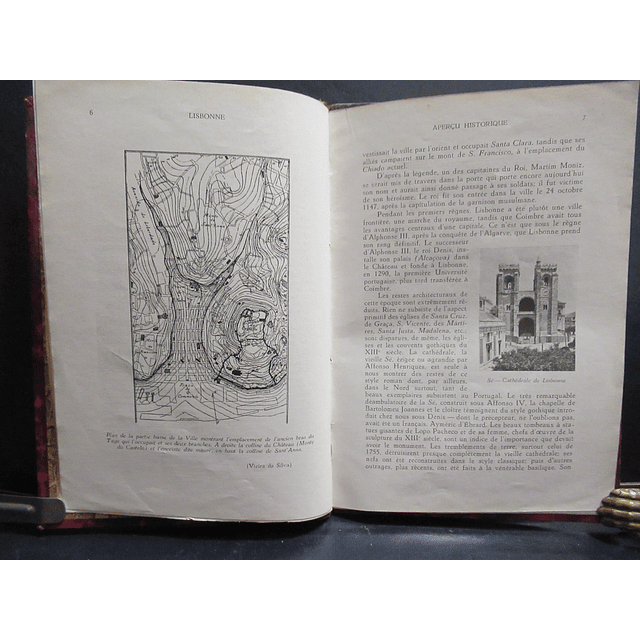 6
LISBONNE
Plan de la partie basse de la Ville montrant l'emplacement de l'ancien bras du
Tage qui l'occupait et ses deux branches. A droite la colline du Château (Monte
do Castelo) et l'enceinte dite maure; en haut la colline de Sant'Anna.
(Vieira da Silva)
APERÇU HISTORIQUE
7
vestissait la ville par l'orient et occupait Santa Clara, tandis que ses
alliés campaient sur le mont de S. Francisco, à l'emplacement du
Chiado actuel.
D'après la légende, un des capitaines du Roi, Martim Moniz,
se serait mis de travers dans la porte qui porte encore aujourd'hui
son nom et aurait ainsi donné passage à ses soldats; il fut victime
de son héroïsme. Le roi fit son entrée dans la ville le 24 octobre
1147, après la capitulation de la garnison musulmane.
Pendant les premiers règnes, Lisbonne a été plutôt une ville
frontière, une marche du royaume, tandis que Coimbre avait tous
les avantages centraux d'une capitale. Ce n'est que sous le règne
d'Alphonse III, après la conquête de l'Algarve, que Lisbonne prend
son rang définitif. Le successeur
d'Alphonse III, le roi Denis, ins-
talle son palais (Alcáçova) dans
le Château et fonde à Lisbonne,
en 1290, la première Université
portugaise, plus tard transférée à
Coimbre.
Les restes architecturaux de
cette époque sont extrêmement ré-
duits. Rien ne subsiste de l'aspect
primitif des églises de Santa Cruz,
de Graça, S. Vicente, des Márti-
res, Santa Justa, Madalena, etc.,
sont disparus, de même, les églises
et les couvents gothiques du
XIIIe siècle. La cathédrale, la
vieille Sé, érigée ou agrandie par
Affonso Henriques, est seule à
nous montrer des restes de ce
style roman dont, par ailleurs,
dans le Nord surtout, tant de
beaux exemplaires subsistent au Portugal. Le très remarquable
déambulatoire de la Sé, construit sous Affonso IV, la chapelle de
Bartolomeu Joannes et le cloître témoignent du style gothique intro-
duit chez nous sous Denis — dont le précepteur, ne l'oublions pas,
avait été un français, Aymeric d'Ebrard. Les beaux tombeaux à sta-
tues gisantes de Lopo Pacheco et de sa femme, chefs d'œuvre de la
sculpture du XIIIe siècle, sont un indice de l'importance que devait
avoir le monument. Les tremblements de terre, surtout celui de
1755, détruisirent presque complètement la vieille cathédrale; ses
nefs ont été reconstruites dans le style classique; puis d'autres
outrages, plus récents, ont été faits à la vénérable basilique. Son
Sé — Cathédrale de Lisbonne